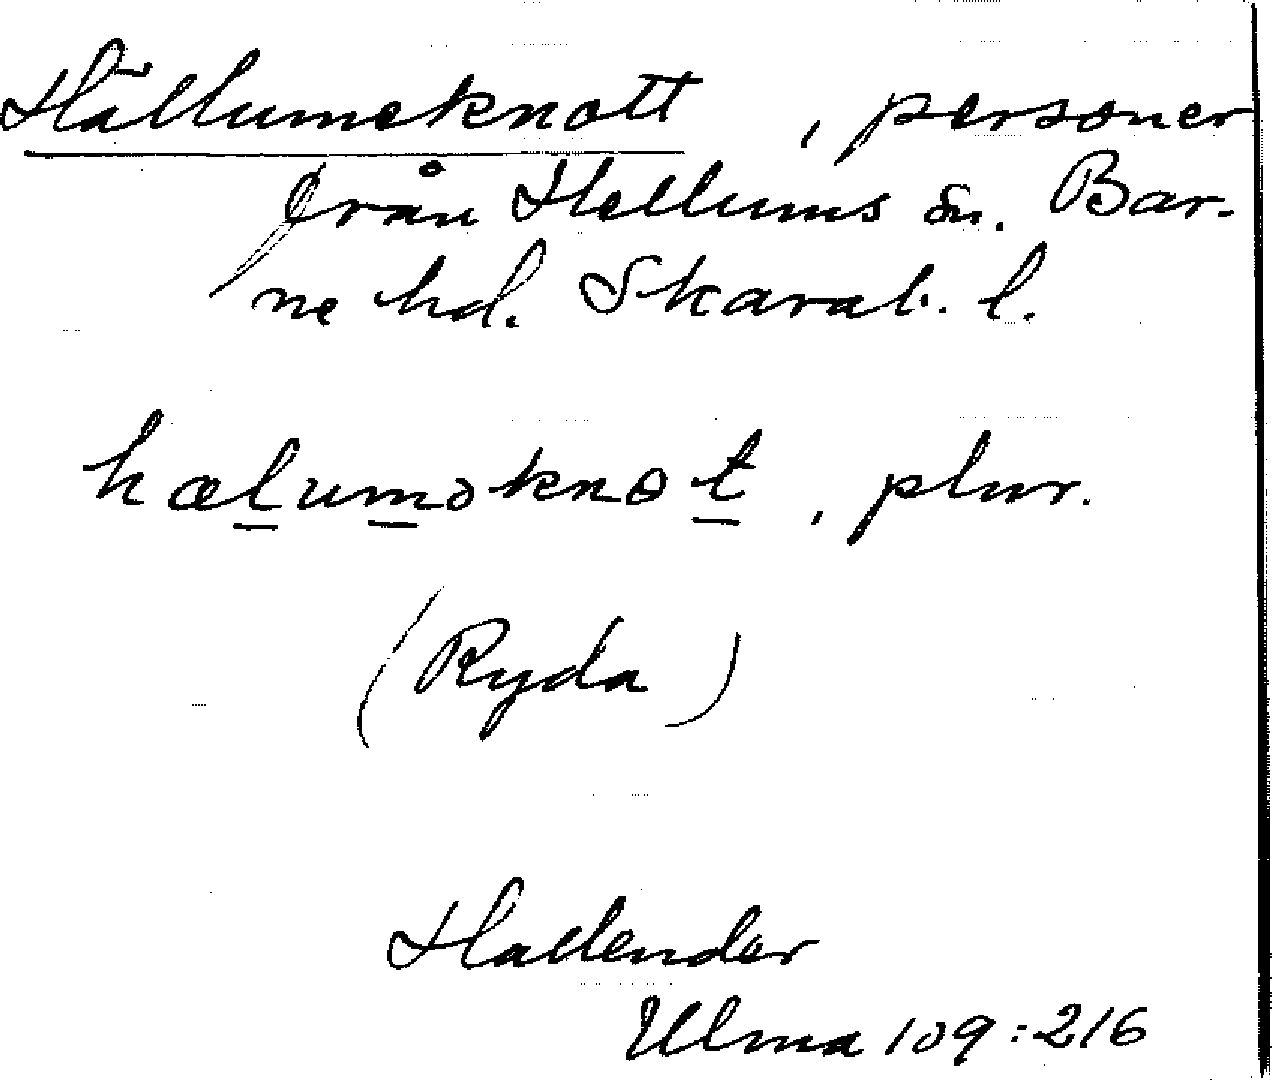 Hällumeknott, personer
från Hellums sn. Bar-
ne hd. Skarab. l.
hæluməknɵt, plur.
(Ryda)
Hallender
Ulma 109:216